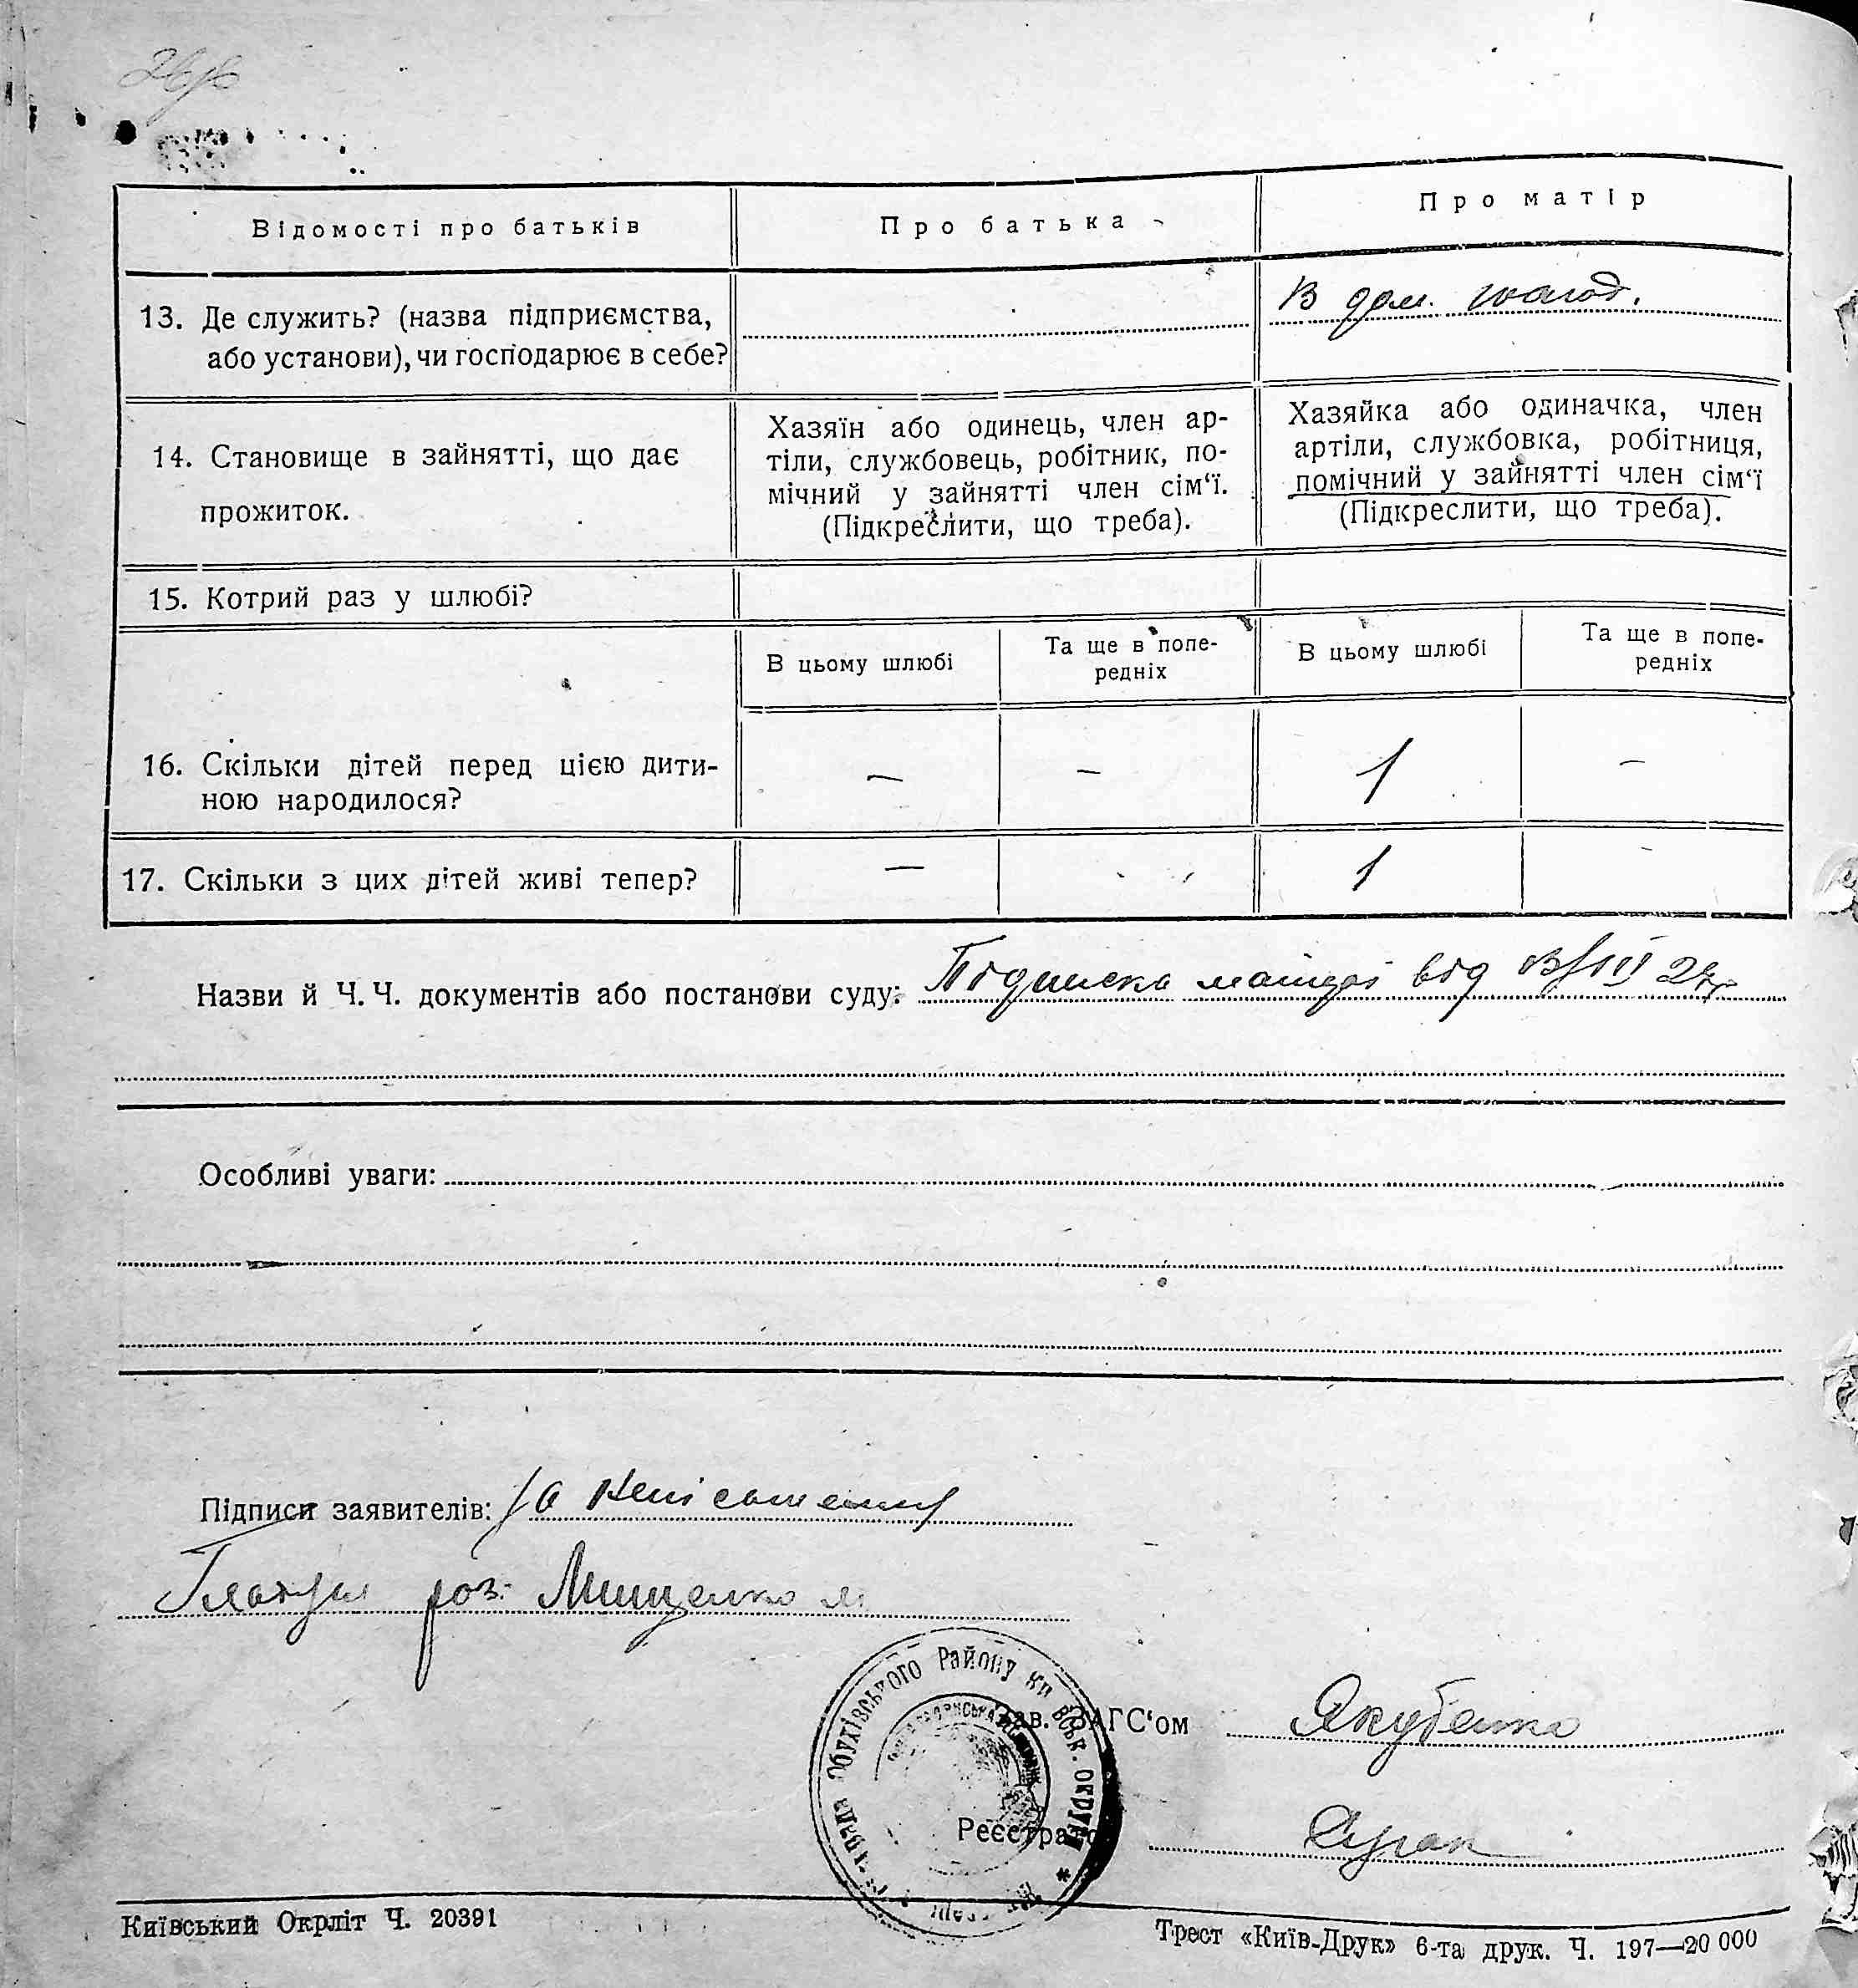 Відомості про батьків
Про батька
Про матір
13. Де служить? (назва підприємства,
або установи), чи господарює в себе?
В дом.
14. Становище в зайнятті, що дає
прожиток.
Хазяїн або одинець, член ар-
тіли, службовець, робітник, по-
мічний у зайнятті член сім‘ї.
(Підкреслити, що треба).
Хазяйка або одиначка, член
артіли, службовка, робітниця,
помічний у зайнятті член сім‘ї
(Підкреслити, що треба).
15. Котрий раз у шлюбі?
В цьому шлюбі
Та ще в попе-
редніх
В цьому шлюбі
Та ще в попе-
редніх
16. Скільки дітей перед цією дити-
ною народилося?
— — 1 —
17. Скільки з цих дітей живі тепер?
— 1 -
Назви й Ч. Ч. документів або постанови суду: Підписка від
Особливі уваги:
Підписи заявителів: За
роз. Мищенко
Зав. ЗАГС‘ом Якубенко
Реєстрато
Обухівського Району
округи
Київський Окрліт Ч. 20391
Трест «Київ-Друк» 6-та друк. Ч. 197—20 000